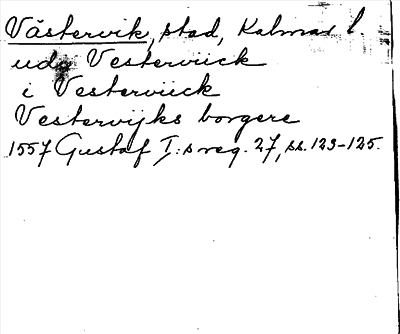 Västervik, stad, Kalmar l.
udo Vesterviick
i Vesterviick
Vestervijks borgere
1557 Gustaf I:s reg. 27, ss. 123-125.